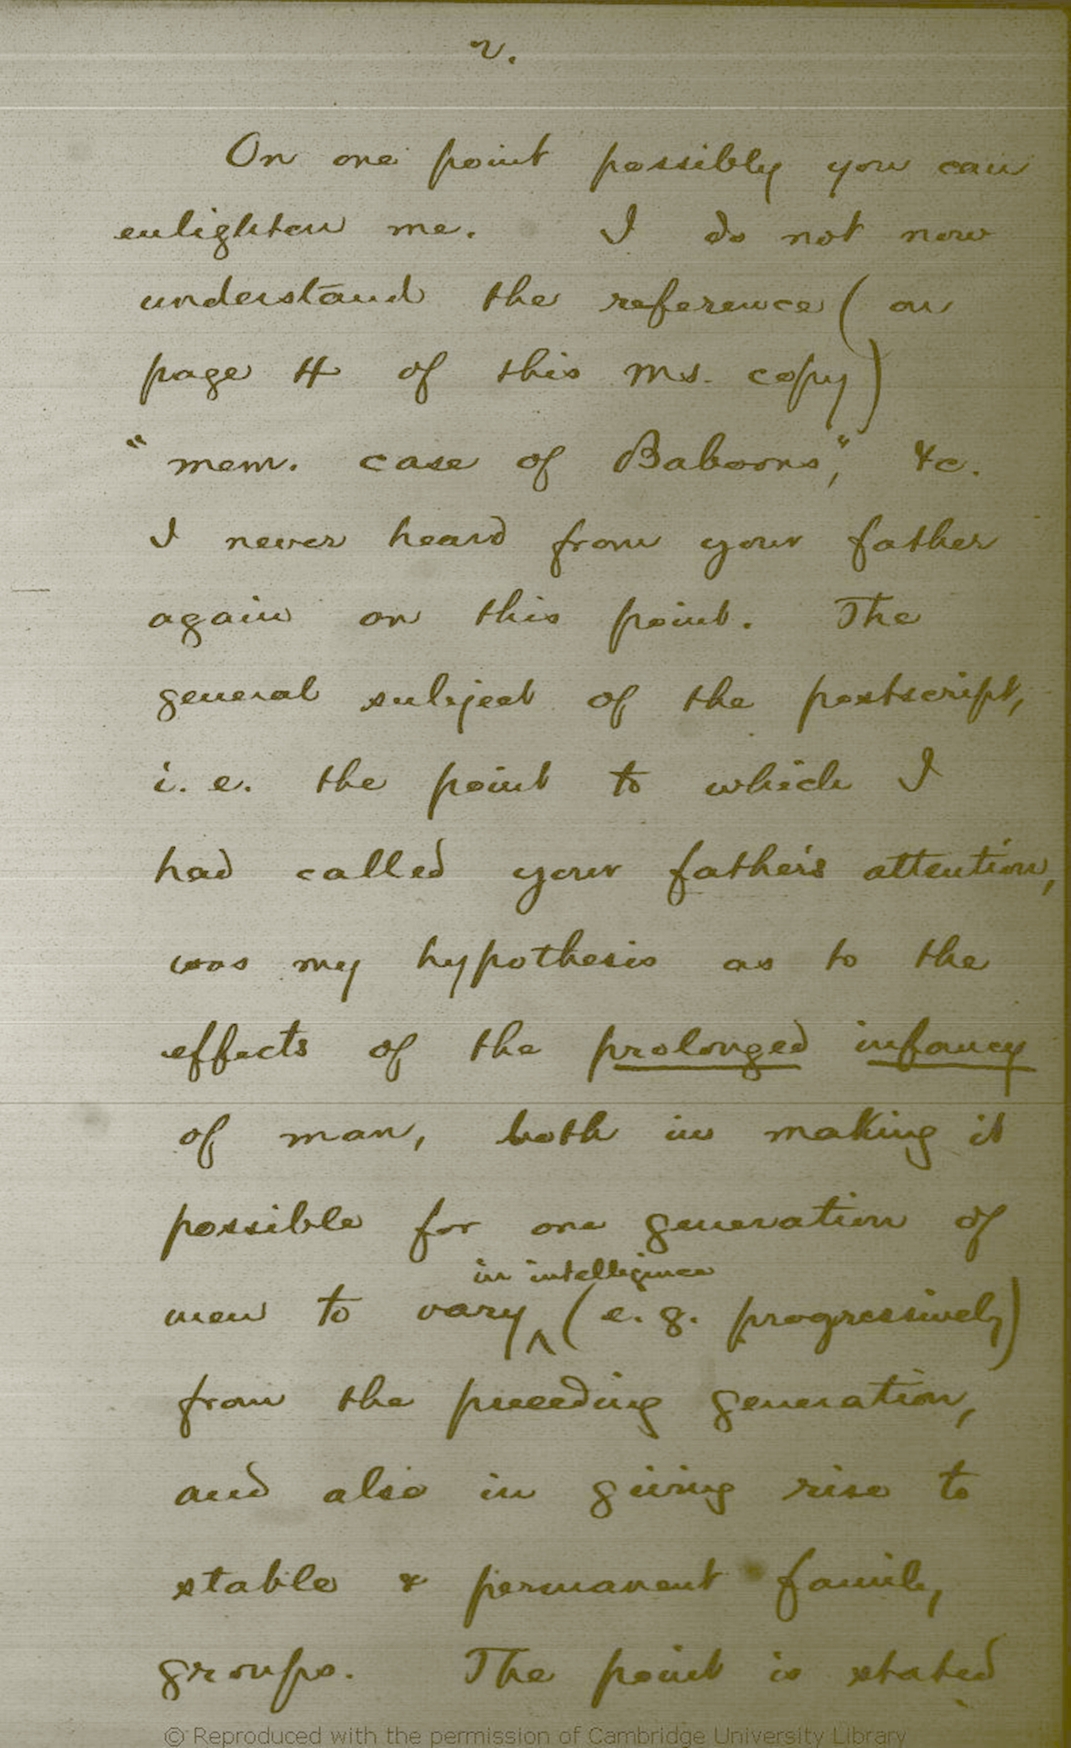 2.
On one point possibly you can
enlighten me. I do not now
understand the reference (on
page 4 of this Ms. copy)
"mem. case of Baboons," &c.
I never heard from your father
again on this point. The
general subject of the postscript,
i. e. the point to which I
had called your father's attention,
was my hypothesis as to the
effects of the prolonged infancy
of man, both in making it
possible for one generation of
in intelligence
men to vary ^ (e. g. progressively)
from the preceding generation,
and also in giving rise to
stable & permanent family
groups. The point is stated
© Reproduced with the permission of Cambridge University Library